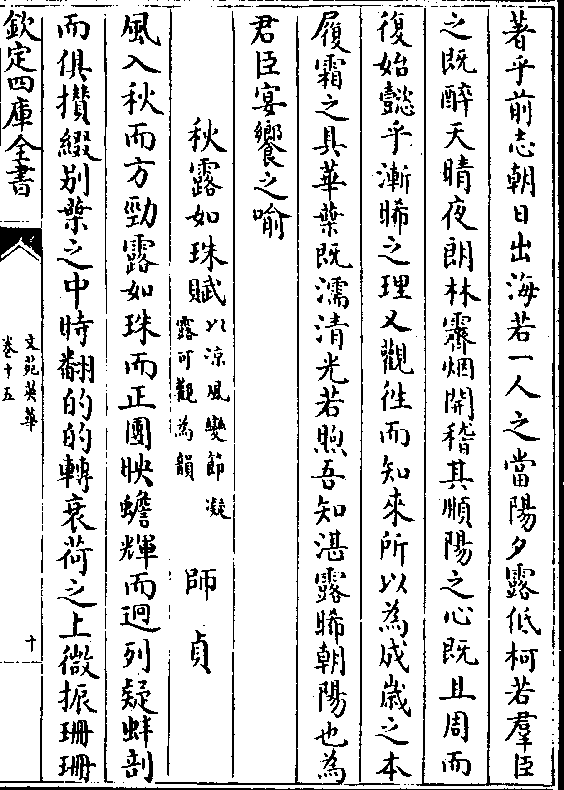 著乎前志朝日出海若一人之當陽夕露低柯若羣臣
之既醉天晴夜朗林霽烟開稽其順陽之心既且周而
復始懿乎漸晞之理又觀徃而知來所以為成嵗之本
履霜之具華葉既濡清光若煦吾知湛露晞朝陽也為
君臣宴饗之喻
秋露如珠賦以涼風變節凝露可觀為韻 師貞
風入秋而方勁露如珠而正團映蟾輝而迥列疑蚌剖
而俱攅綴别葉之中時翻的的轉衰荷之上微振珊珊
欽定四庫全書
文苑英華
卷十五
十